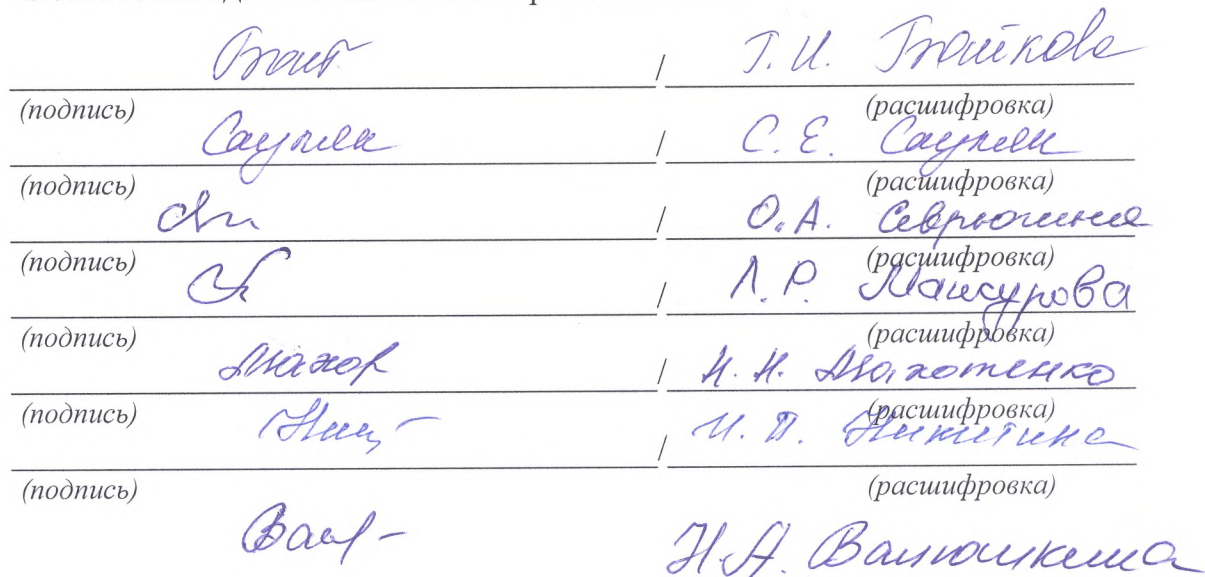 Байк / Г. И. Байкова
(подпись) (расшифровка)
Саупян / С. Е. Саупян
(подпись) (расшифровка)
/ О. А. Севрюгина
(подпись) (расшифровка)
/ Л. Р. Мансурова
(подпись) (расшифровка)
/ Н. Н. Махотенко
(подпись) (расшифровка)
/ И. П. Никитина
(подпись) (расшифровка)
Н. А. Ванюшкина